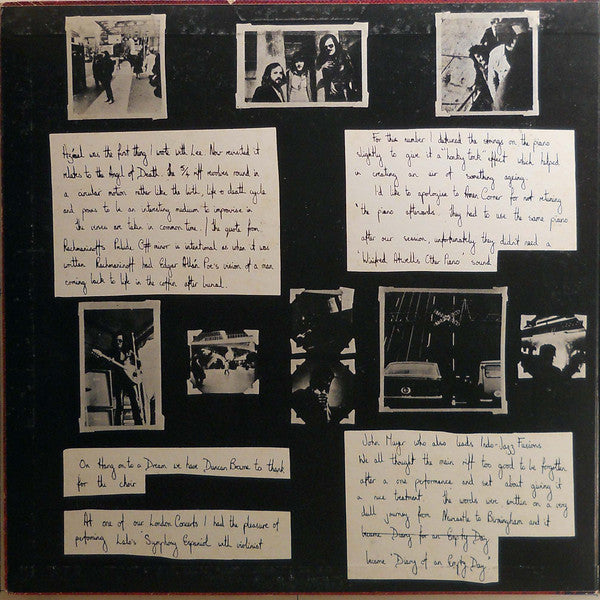 Azrael was the first thing I wrote with Lee. Now revisited it
relates to the Angel of Death. the 5/4 riff revolves round in
a circular motion rather like the birth, life & death cycle
and proves to be an interesting medium to improvise in
the verses are taken in common time. / the quote from
Rachmaninoff's Prelude C# minor is intentional as when it was
written Rachmaninoff had Edgar Allan Poe's vision of a man
coming back to life in the coffin after burial.
For this number I detuned the strings on the piano
slightly to give it a "honky tonk" effect which helped
in creating an air of something ageing.
I'd like to apologise to Amen Corner for not retuning
the piano afterwards. they had to use the same piano
after our session, unfortunately they didn't need a
'Winifred Atwell's Other Piano' sound.
On Hang on to a Dream we have Duncan Browne to thank
for the choir
At one of our London Concerts I had the pleasure of
performing Lalo's 'Symphony Espanol' with violinist
John Mayer who also leads Indo-Jazz Fusions.
We all thought the main riff too good to be forgotten
after a one performance and set about giving it
a nice treatment. the words were written on a very
dull journey from Newcastle to Birmingham and it
became Diary for an Empty Day
became 'Diary of an Empty Day'